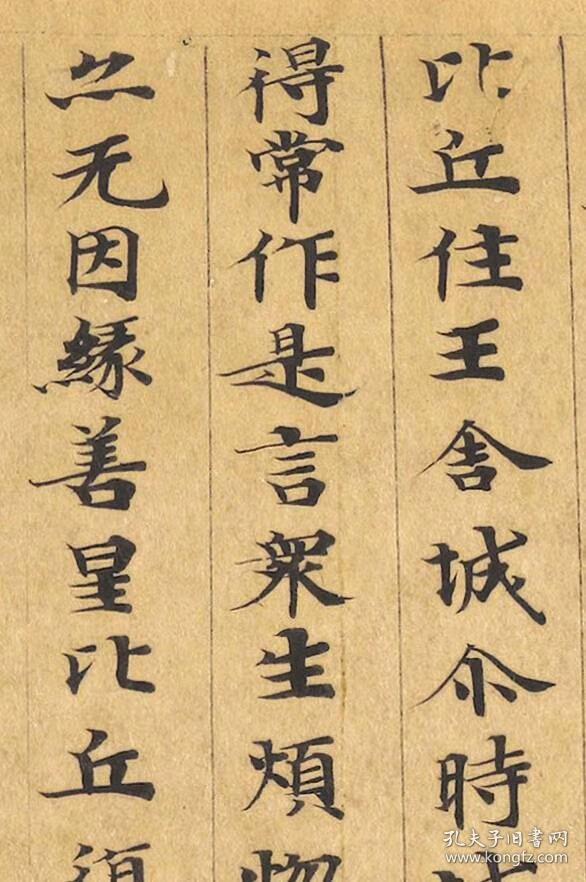 比丘住王舍城尒時
得常作是言衆生煩
亦无因緣善星比丘
孔夫子旧书网
www.kongfz.com